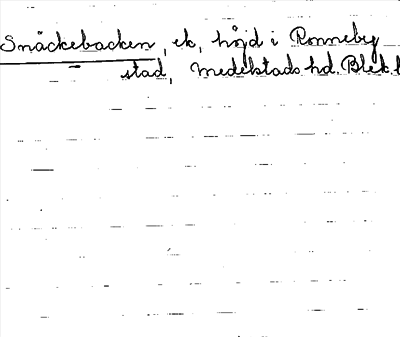 Snäckebacken, ek, höjd i Ronneby
stad, Medelstads hd. Blek.l